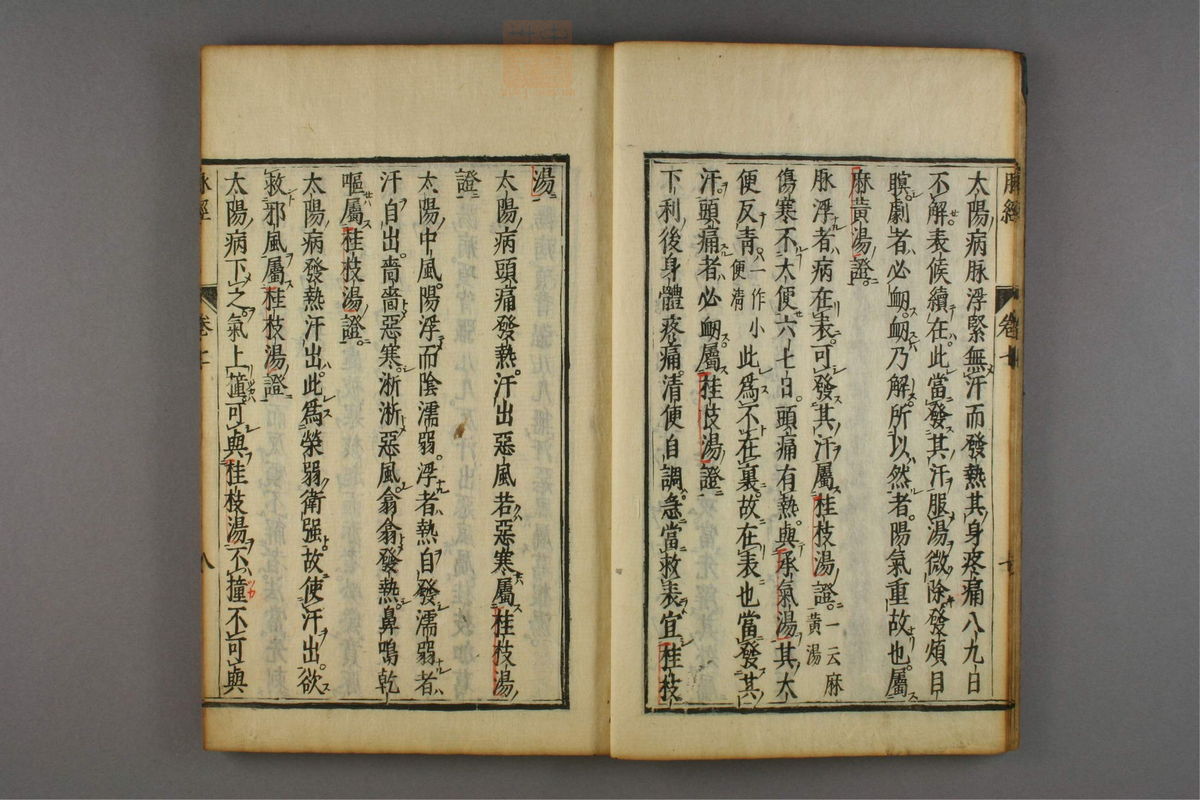 脉經 卷七 七
太陽病脉浮緊無汗而發熱其身疼痛八九日
不解表候續在此當發其汗服湯微除發煩目
瞑劇者必衂衂乃解所以然者陽氣重故也屬
麻黄湯證
脉浮者病在表可發其汗屬桂枝湯證一云麻黄湯
傷寒不大便六七日頭痛有熱與承氣湯其大
便反青一作小便淸此爲不在裏故在表也當發其
汗頭痛者必衂屬桂枝湯證
下利後身體疼痛清便自調急當救表宜桂枝
湯
太陽病頭痛發熱汗出惡風若惡寒屬桂枝湯
證
太陽中風陽浮而陰濡弱浮者熱自發濡弱者
汗自出嗇嗇惡寒淅淅惡風翕翕發熱鼻鳴乾
嘔屬桂枝湯證
太陽病發熱汗出此爲榮弱衛强故使汗出欲
救邪風屬桂枝湯證
太陽病下之氣上撞可與桂枝湯不撞不可與
脉經 卷七 八